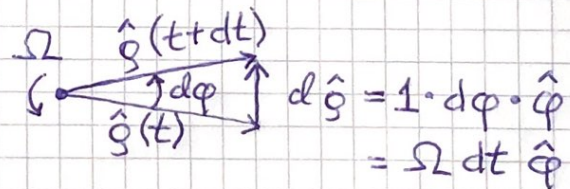 Ω
ρ̂(t+dt)
dφ
ρ̂(t)
dρ̂ = 1·dφ·φ̂
= Ω dt φ̂